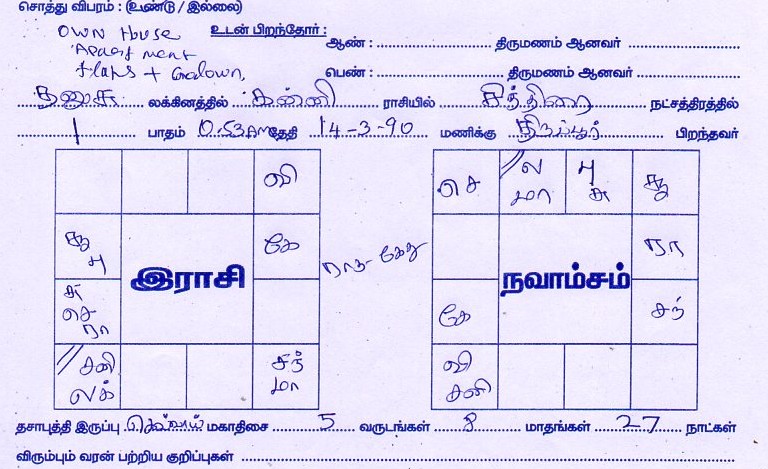 சொத்து விபரம் : (உண்டு / இல்லை)
OWN House
Apartment
flats + Godown,
உடன் பிறந்தோர் :
ஆண் : திருமணம் ஆனவர்
பெண் : திருமணம் ஆனவர்
தனுசு லக்கினத்தில் கன்னி ராசியில் சித்திரை நட்சத்திரத்தில்
1 பாதம் 0.53AM தேதி 14-3-90 மணிக்கு திருப்பூர் பிறந்தவர்
வி
சூ
பு
கே
சு
செ
ரா
சனி
லக்
சந்
மா
இராசி
ராகு கேது
செ
ல
மா
பு
சு
சூ
ரா
கே
சந்
வி
சனி
நவாம்சம்
தசாபுத்தி இருப்பு செவ்வாய் மகாதிசை 5 வருடங்கள் 8 மாதங்கள் 27 நாட்கள்
விரும்பும் வரன் பற்றிய குறிப்புகள்